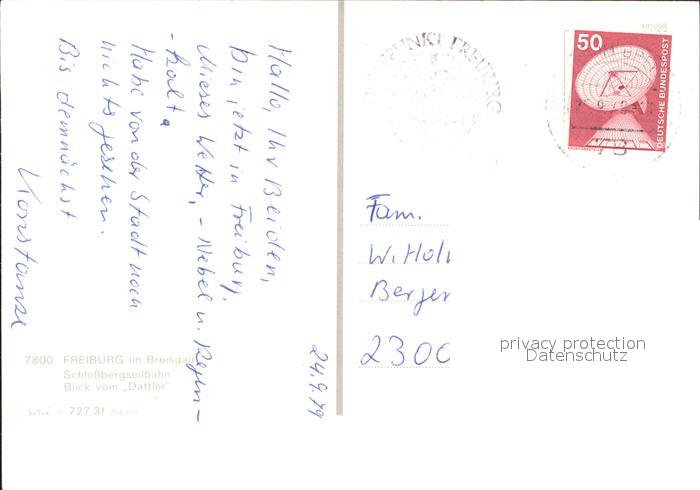 Hallo, Ihr Beiden,
bin jetzt in Freiburg.
Mieses Wetter, - Nebel u. Regen -
- kalt.
Habe von der Stadt noch
nichts gesehen.
Bis demnächst
Konstanze
24.9.79
7800 FREIBURG im Breisgau
Schloßbergseilbahn
Blick vom „Dattler"
727.31
491008
50
DEUTSCHE BUNDESPOST
PUNKT FREIBURG
78
Fam.
W. Holl
Berger
2300
privacy protection
Datenschutz